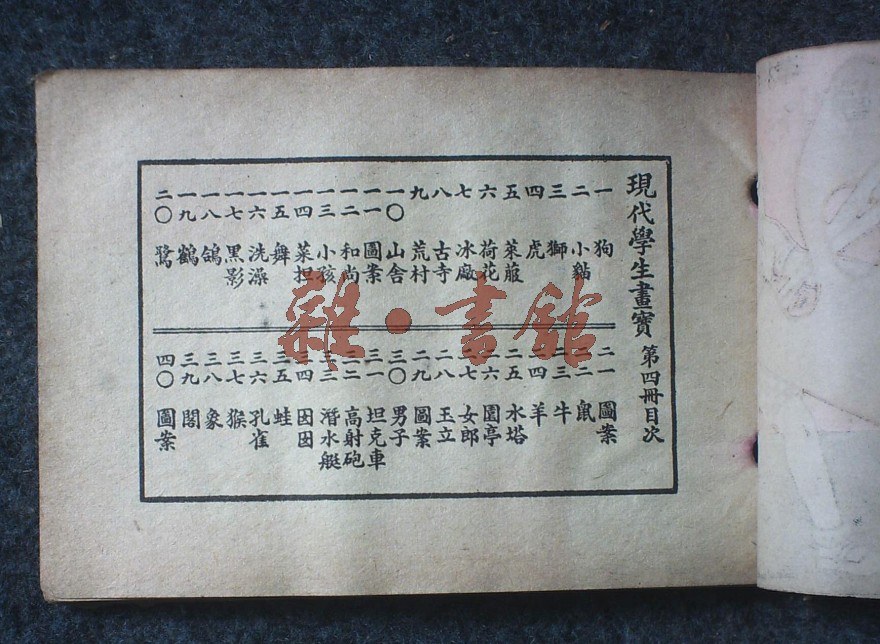 現代學生畫寶 第四冊目次
一 狗
二 小貓
三 獅
四 虎
五 萊菔
六 荷花
七 冰廠
八 古寺
九 荒村
一〇 山舍
一一 圖案
一二 和尚
一三 小孩
一四 菜担
一五 舞
一六 洗澡
一七 黑影
一八 鴿
一九 鶴
二〇 鷺
二一 圖案
二二 鼠
二三 牛
二四 羊
二五 水塔
二六 園亭
二七 女郎
二八 玉立
二九 圖案
三〇 男子
三一 坦克車
三二 高射砲
三三 潛水艇
三四 囡囡
三五 蛙
三六 孔雀
三七 猴
三八 象
三九 閣
四〇 圖案
雜·書館